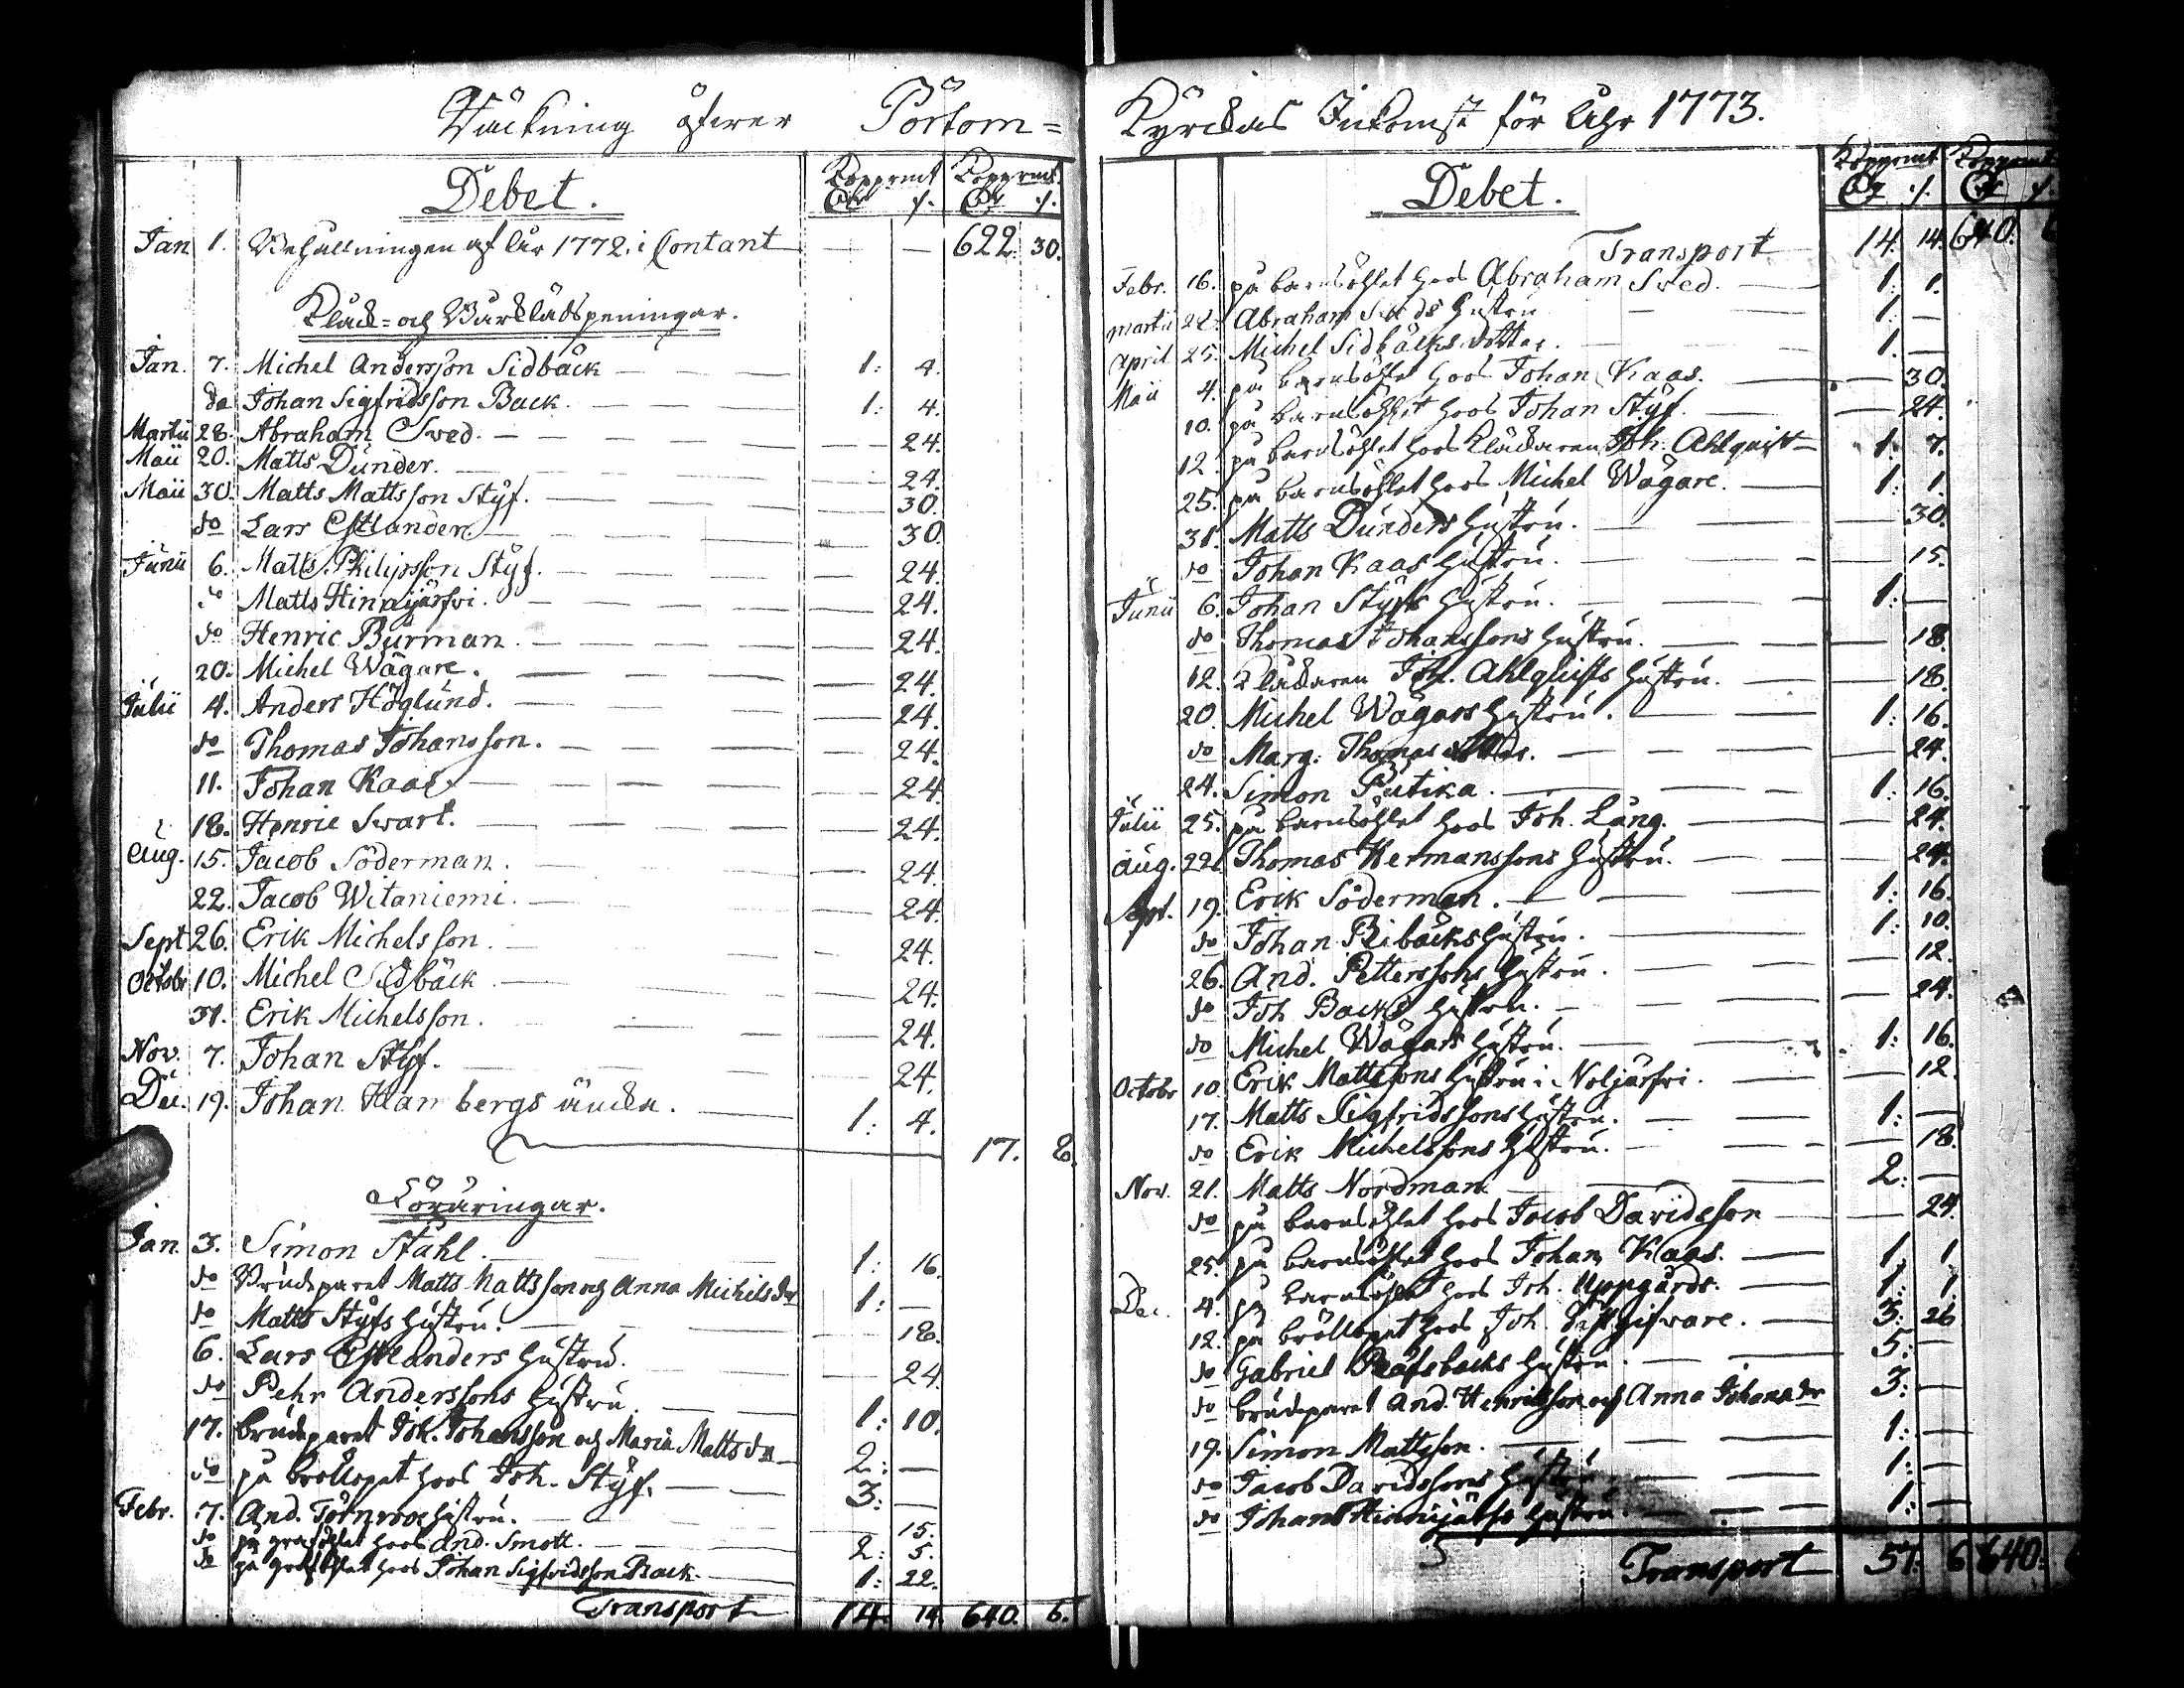 Räckning öfwer Pörtom=
Debet.
Koppmt Kopprmt.
Jan 1. Behållningen af år 1772. i Contant — — 622. 30.
Klåck= och Bårklädspeningar.
Jan. 7. Michel Andersson Sidbäck — 1: 4.
do Johan Sigfridsson Back. — 1: 4.
Martii 28. Abraham Sved. — 24.
Maii 20. Matts Dunder. — 24.
Maii 30. Matts Mattsson Styf. — 30.
do Lars Estlander. — 30.
Junii 6. Matts Philipsson Styf. — 24.
do Matts Hinnijärfvi. — 24.
do Henric Burman. — 24.
20. Michel Wägare. — 24.
Julii 4. Anders Höglund. — 24.
do Thomas Johansson. — 24.
11. Johan Kaas — 24.
18. Henric Svart. — 24.
Aug. 15. Jacob Söderman. — 24.
22. Jacob Witaniemi. — 24.
Sept 26. Erik Michelsson. — 24.
Octobr 10. Michel Sidbäck — 24.
31. Erik Michelsson. — 24.
Nov. 7. Johan Styf. — 24.
Dec. 19. Johan Hambergs äncka. — 1: 4.
17. 8.
Föräringar.
Jan. 3. Simon Ståhl. — 1: 16.
do Brudeparet Matts Mattsson och Anna Michelsdr 1: —
do Matts Styfs hustru. — 18.
6. Lars Estlanders hustru. — 24.
do Pehr Anderssons hustru. — 1: 10.
17. brudeparet Joh. Johansson och Maria Mattsdr — 2: —
do på bröllopet hos Joh. Styf. — 3: —
Febr. 7. And. Törnroos hustru. — 15.
do på graföhlet hoos And. Smott. — 2: 5.
do på graföhlet hoos Johan Sigfridsson Back. — 1: 22.
Transport 14. 14. 640. 6.
Kyrckas Inkomst för Åhr 1773.
Debet.
Koppmt Koppmt
Transport 14. 14. 640. 6
Febr. 16. på barnsöhlet hoos Abraham Sved. — 1: 1.
Martii 22. Abraham Sveds hustru — 1: —
April 25. Michel Sidbäcks dotter. — 1. —
Maii 4. på barnsöhlet hoos Johan Kaas. — 30.
10. på barnsöhlet hoos Johan Styf. — 24.
12. på barnsöhlet hoos Klåckaren Joh. Ahlqvist — 1: 7.
25. på barnsöhlet hoos Michel Wägare. — 1: 1.
31. Matts Dunders hustru. — 30.
do Johan Kaas hustru. — 15.
Junii 6. Johan Styfs hustru. — 1: —
do Thomas Johanssons hustru. — 18.
12. Klåckaren Joh. Ahlquists hustru. — 18.
20. Michel Wägars hustru. — 1: 16.
do Marg. Thomas — 24.
24. Simon Putika. — 1: 16.
Julii 25. på barnsöhlet hoos Joh. Lång. — 24.
Aug. 22. Thomas Hermanssons hustru. — 24.
Sept. 19. Erik Söderman. — 1: 16.
do Johan Ribäcks hustru. — 1: 10.
26. And. Petterssons hustru. — 12.
do Joh Backs hustru. — 24.
do Michel Wägars hustru. — 1: 16.
Octobr 10. Erik Mattssons hustru i Noljärfvi. — 12.
17. Matts Sigfridssons hustru. — 1: —
do Erik Michelssons hustru. — 18.
Nov. 21. Matts Nordman — 2: —
do på barnsöhlet hoos Jacob Davidsson — 24.
25. på barnsöhlet hoos Johan Kaas. — 1: 1
Dec. 4. på barnsöhlet hoos Joh. Uppgårds. — 1: 1
12. på bröllopet hoos Joh. — 3: 26
do Gabriel Räfsbäcks hustru. — 5: —
do brudeparet And. Henriksson och Anna Johansdr 3: —
19. Simon Mattsson. — 1: —
do Jacob Davidssons hustru. — 1: —
do Johan Hinnijärfs hustru. — 1: —
Transport 57. 6 640. 6